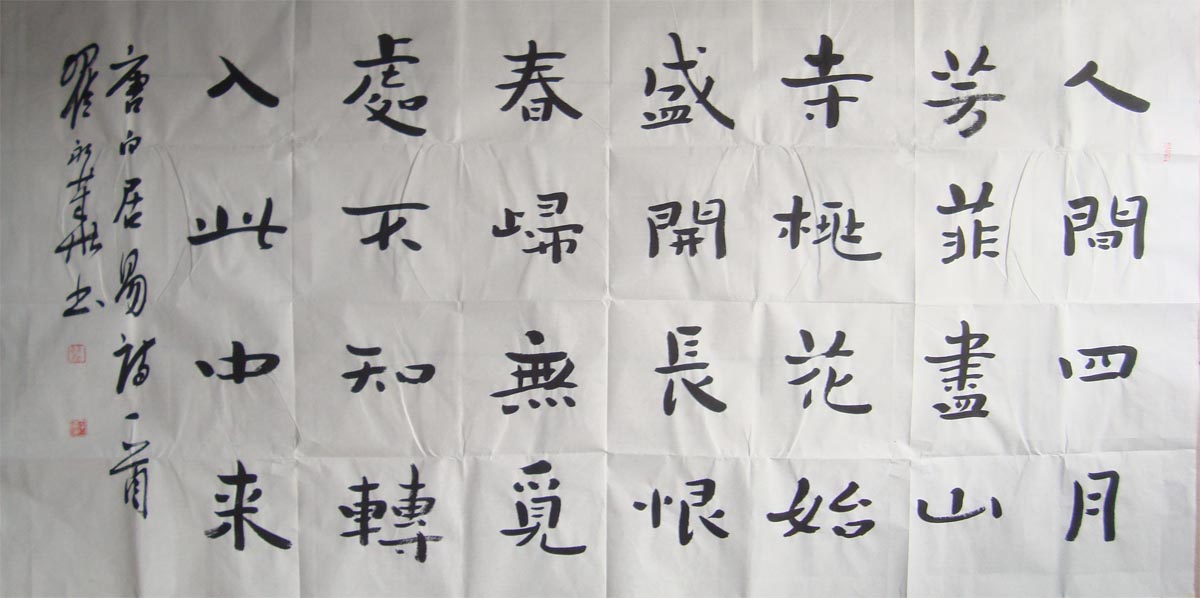 人間四月
芳菲盡山
寺桃花始
盛開長恨
春歸無覓
處不知轉
入此中来
唐白居易詩一首
翟永书